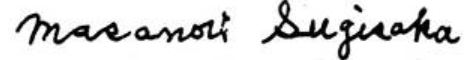 Masanori Sugisaka